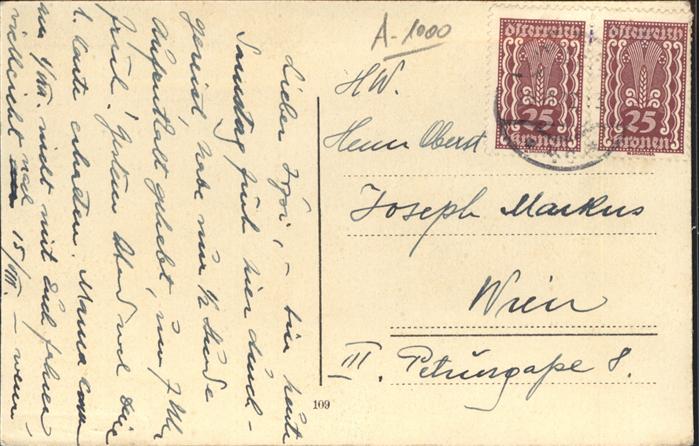 Lieber , – bin heute
Samstag früh hier durch-
gereist, habe nur ½ Stunde
Aufenthalt gehabt, um 7 Uhr
früh. Gestern Abend noch Deine
l. Karte erhalten. Mama kann
am 1/VIII. nicht mit Euch fahren,
vielleicht nach 15/VIII. – wenn
A-1000
H.W.
Herrn Oberst
Joseph Markus
Wien
III. Petrusgaße 8.
109
österreich
25
Kronen
österreich
25
Kronen